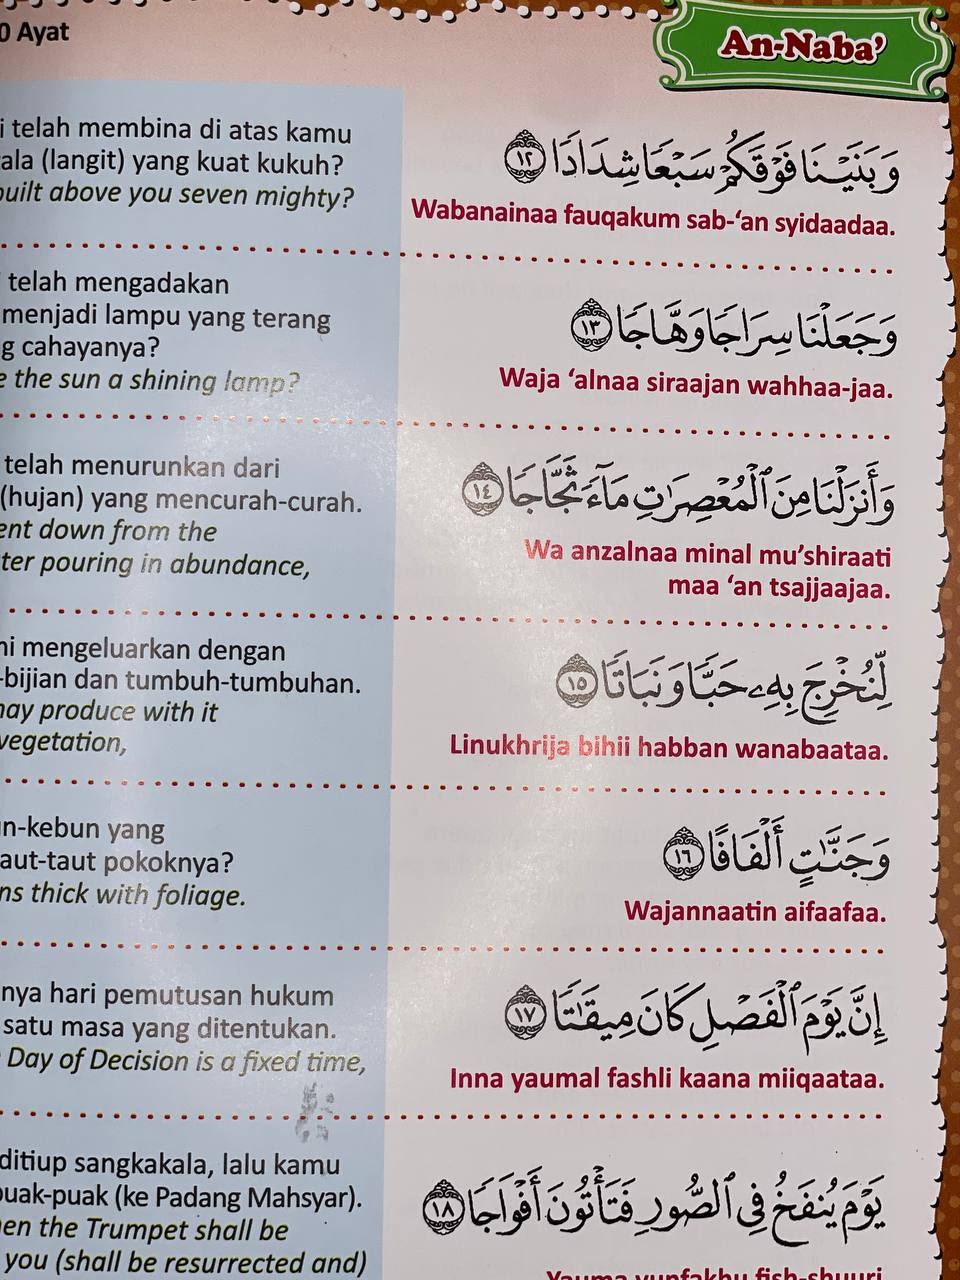 0 Ayat
An-Naba’
i telah membina di atas kamu
ala (langit) yang kuat kukuh?
built above you seven mighty?
وَبَنَيْنَا فَوْقَكُمْ سَبْعًا شِدَادًا ١٢
Wabanainaa fauqakum sab-‘an syidaadaa.
telah mengadakan
menjadi lampu yang terang
g cahayanya?
e the sun a shining lamp?
وَجَعَلْنَا سِرَاجًا وَهَّاجًا ١٣
Waja ‘alnaa siraajan wahhaa-jaa.
telah menurunkan dari
(hujan) yang mencurah-curah.
ent down from the
ter pouring in abundance,
وَأَنزَلْنَا مِنَ ٱلْمُعْصِرَٰتِ مَآءً ثَجَّاجًا ١٤
Wa anzalnaa minal mu’shiraati
maa ‘an tsajjaajaa.
ni mengeluarkan dengan
-bijian dan tumbuh-tumbuhan.
may produce with it
vegetation,
لِّنُخْرِجَ بِهِۦ حَبًّا وَنَبَاتًا ١٥
Linukhrija bihii habban wanabaataa.
n-kebun yang
aut-taut pokoknya?
ns thick with foliage.
وَجَنَّٰتٍ أَلْفَافًا ١٦
Wajannaatin aifaafaa.
nya hari pemutusan hukum
satu masa yang ditentukan.
Day of Decision is a fixed time,
إِنَّ يَوْمَ ٱلْفَصْلِ كَانَ مِيقَٰتًا ١٧
Inna yaumal fashli kaana miiqaataa.
ditiup sangkakala, lalu kamu
puak-puak (ke Padang Mahsyar).
en the Trumpet shall be
you (shall be resurrected and)
يَوْمَ يُنفَخُ فِى ٱلصُّورِ فَتَأْتُونَ أَفْوَاجًا ١٨
Yauma yunfakhu fish-shuuri